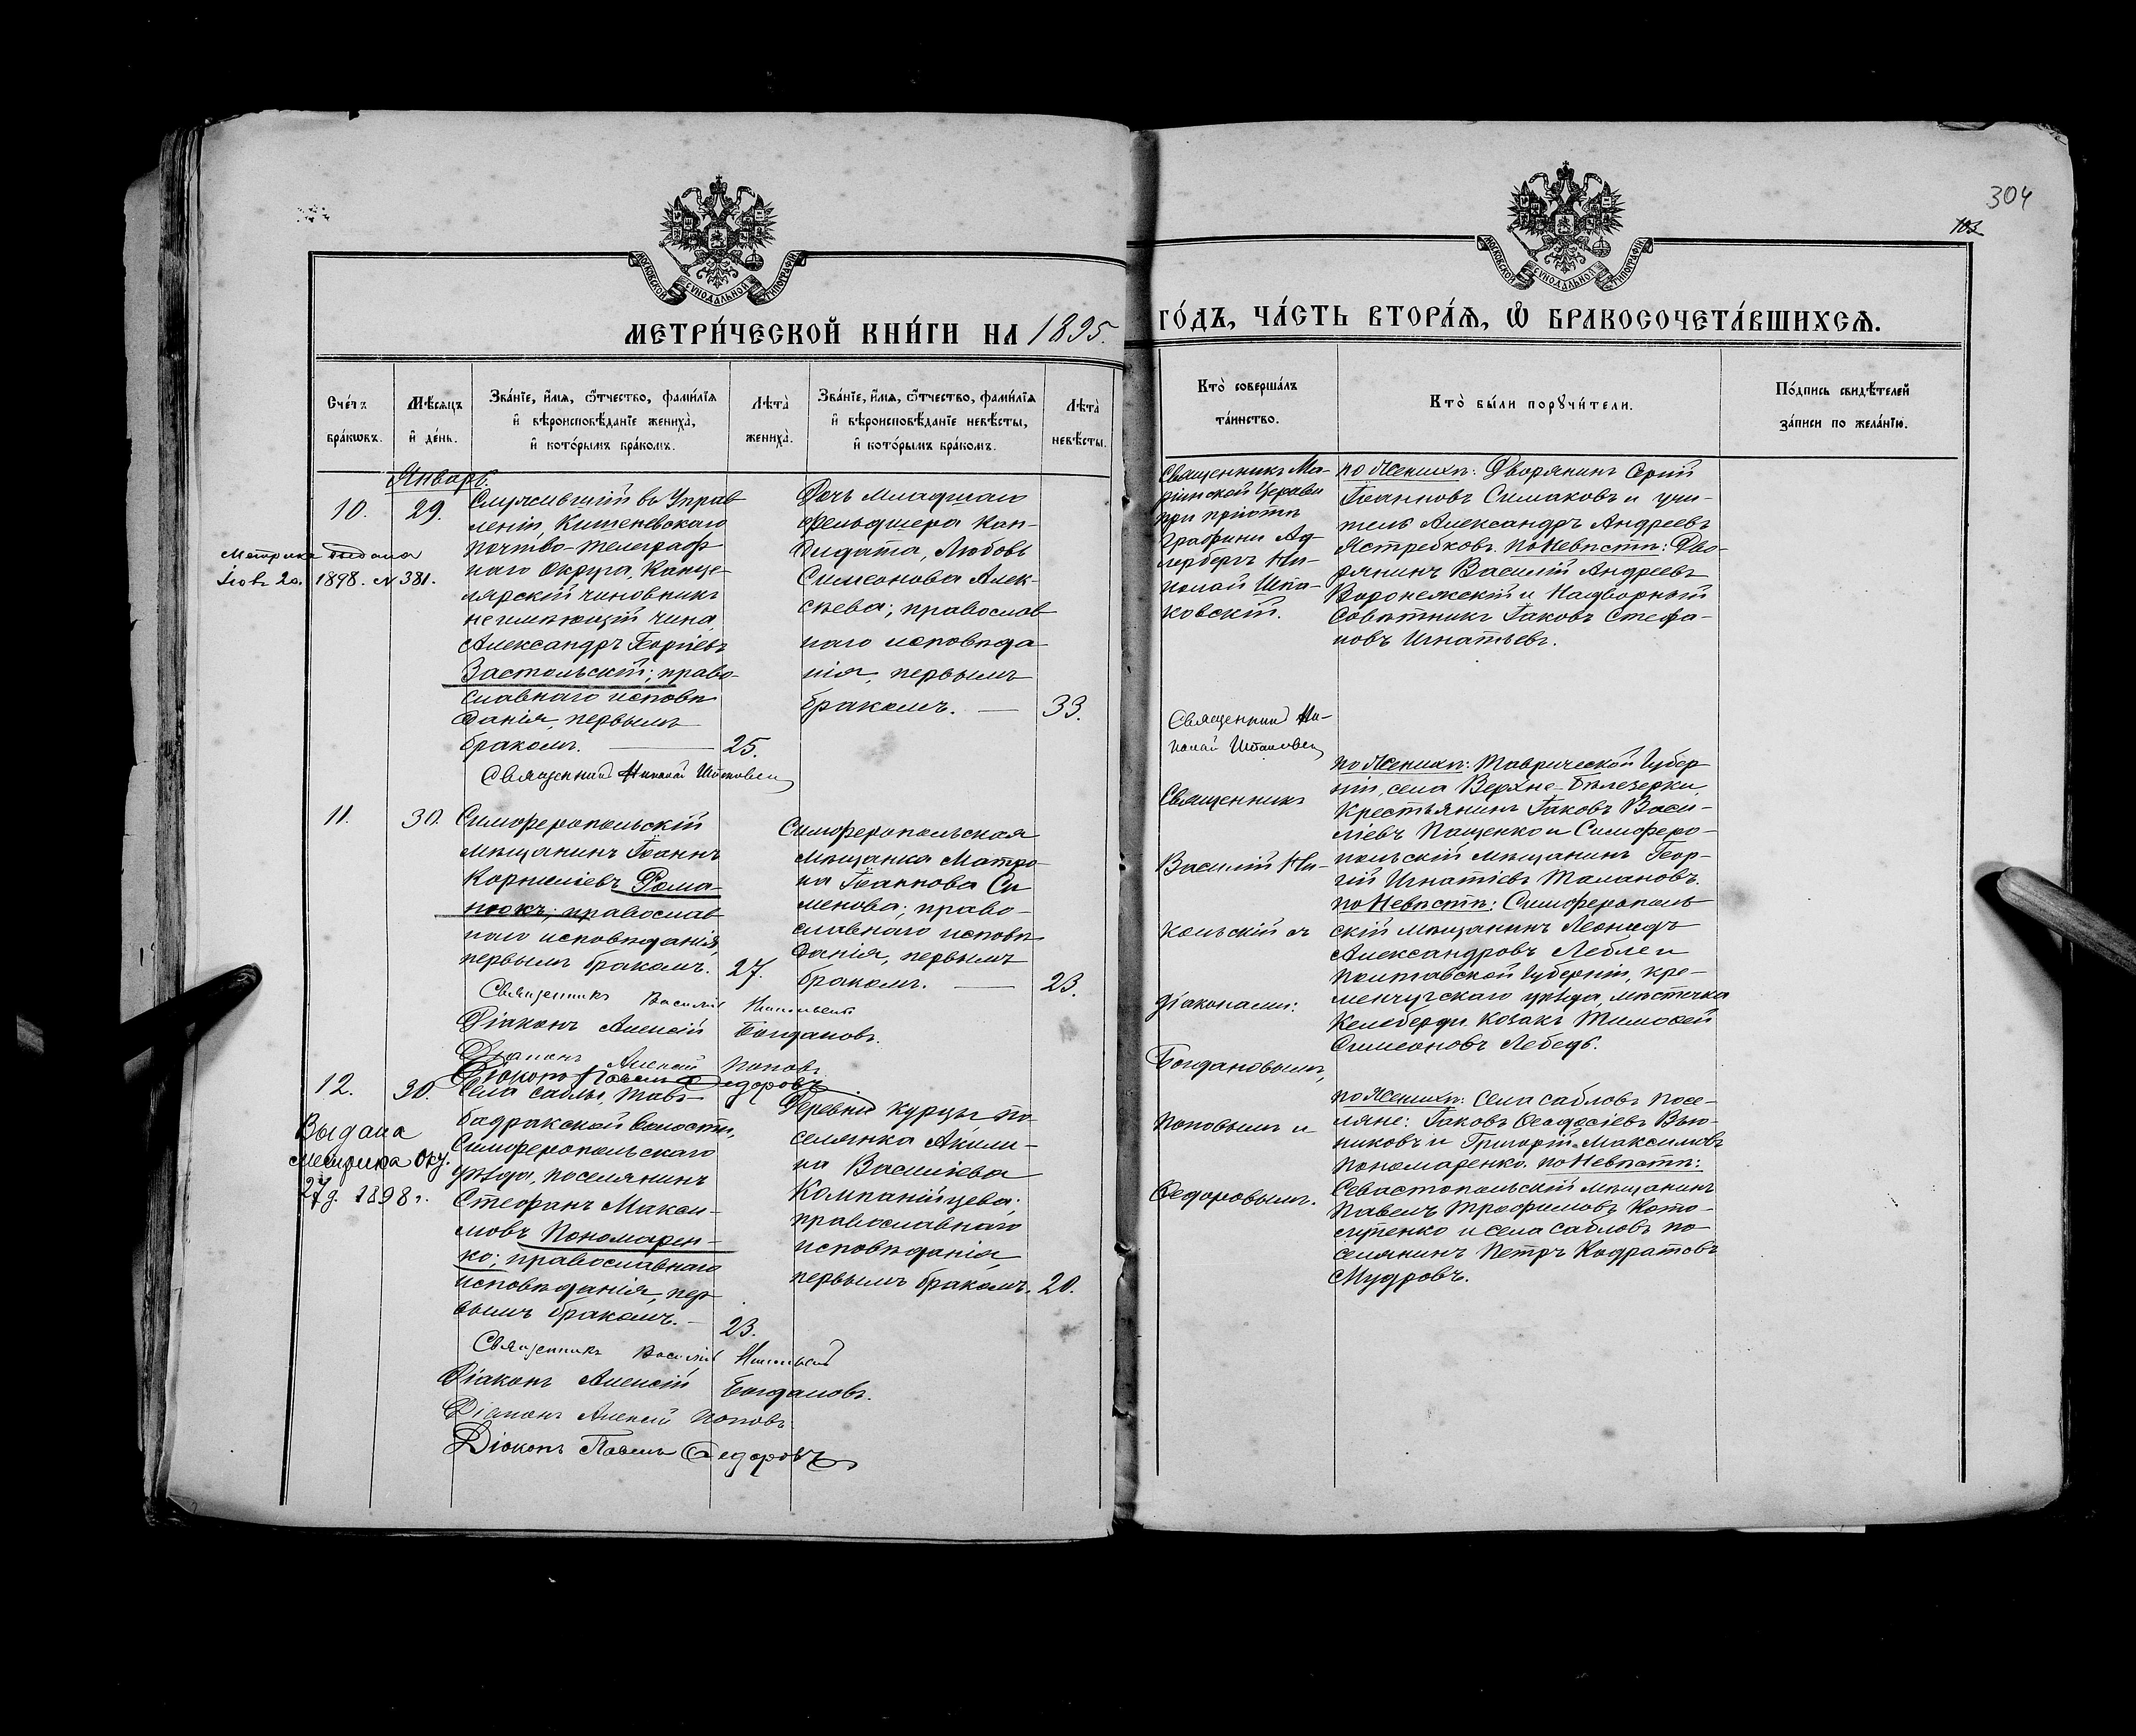 304
103
МОСКОВСКОЙ СѴНОДАЛЬНОЙ ТИПОГРАФІИ
МОСКОВСКОЙ СѴНОДАЛЬНОЙ ТИПОГРАФІИ
МЕТРИ́ЧЕСКОЙ КНИ́ГИ НА 1895.
ГО́ДЪ, ЧА́СТЬ ВТОРА́Ѧ, Ѡ БРАКОСОЧЕТА́ВШИХСѦ.
Сче́тъ
бра́кѡвъ.
Мѣ́сѧцъ
и҆ де́нь.
Зва́нїе, и҆́мѧ, ѻ҆́тчество, фами́лїѧ
и҆ вѣроисповѣ́данїе жениха̀,
и҆ кото́рымъ бра́комъ.
Лѣта̀
жениха̀.
Зва́нїе, и҆́мѧ, ѻ҆́тчество, фами́лїѧ
и҆ вѣроисповѣ́данїе невѣ́сты,
и҆ кото́рымъ бра́комъ.
Лѣта̀
невѣ́сты.
Кто̀ соверша́лъ
та́инство.
Кто̀ бы́ли порꙋчи́тели.
По́дпись свидѣ́телей
за́писи по жела́нїю.
Январь.
10.
29.
Метрика выдана
1898. № 381.
Служившій въ Управ
леніи Кишеневскаго
почтово-телеграф
наго Округа, Канце-
лярскій чиновникъ
неимѣющій чина
Александръ Георгіевъ
Застольскій; право-
славнаго исповѣ
данія, первымъ
бракомъ.
25.
Священникъ Николай Шпаковскій
Дочь младшаго
фельдшера кан-
дидата, Любовь
Симеонова Алек-
сѣева; православ
наго исповѣда
нія, первымъ
бракомъ. —
33.
Священникъ Ма-
ріинской Церкви
при пріютѣ
Графини Ад-
лербергъ Ни-
колай Шпа-
ковскій.
Священникъ Ни-
колай Шпаковскій
по Женихѣ: Дворянинъ Сергій
Іоанновъ Симаковъ и учи-
тель Александръ Андреевъ
Ястребковъ. по Невѣстѣ: Дво-
рянинъ Василій Андреевъ
Воронежскій и Надворный
Совѣтникъ Іаковъ Стефа-
новъ Игнатьевъ.
11.
30.
Симферопольскій
мѣщанинъ Іоаннъ
Корниліевъ Рома-
нюкъ; православ
наго исповѣданія,
первымъ бракомъ.
27.
Священникъ Василій Никольскій
Діаконъ Алексій Богдановъ.
Діаконъ Алексій Поповъ
Діаконъ Павелъ Федоровъ
Симферопольская
мѣщанка Матро-
на Іоаннова Си
менова; право-
славнаго исповѣ
данія, первымъ
бракомъ. —
23.
Священникъ
Василій Ни-
кольскій съ
діаконами:
Богдановымъ,
Поповымъ и
Федоровымъ.
по Женихѣ: Таврической Губер-
ніи, села Верхне-Бѣлезерки,
Крестьянинъ Іаковъ Васи-
ліевъ Пащенко и Симферо-
польскій мѣщанинъ Геор-
гій Игнатіевъ Талановъ.
по Невѣстѣ: Симферополь
скій мѣщанинъ Леонидъ
Александровъ Лебле и
Полтавской Губерніи, Кре-
менчугскаго уѣзда, мѣстечка
Келеберди Козакъ Тимофей
Симеоновъ Лебедь.
12.
30.
Выдана
Метрика Окт.
27 д. 1898 г.
Села Саблы, Тавъ-
бадракской волости,
Симферопольскаго
уѣзда, поселянинъ
Стефанъ Макси-
мовъ Пономарен-
ко; православнаго
исповѣданія, пер
вымъ бракомъ. —
23.
Священникъ Василій Никольскій
Діаконъ Алексій Богдановъ.
Діаконъ Алексій Поповъ
Діаконъ Павелъ Федоровъ
Деревни Курцы по-
селянка Акили-
на Василіева
Компанійцева;
православнаго
исповѣданія,
первымъ бракомъ.
20.
по Женихѣ: села Сабловъ посе-
ляне: Іаковъ Феодосіевъ Вью-
никовъ и Григорій Максимовъ
Пономаренко. по Невѣстѣ:
Севастопольскій мѣщанинъ
Павелъ Трофимовъ Кото-
лупенко и села Сабловъ по-
селянинъ Петръ Кодратовъ
Мудровъ.